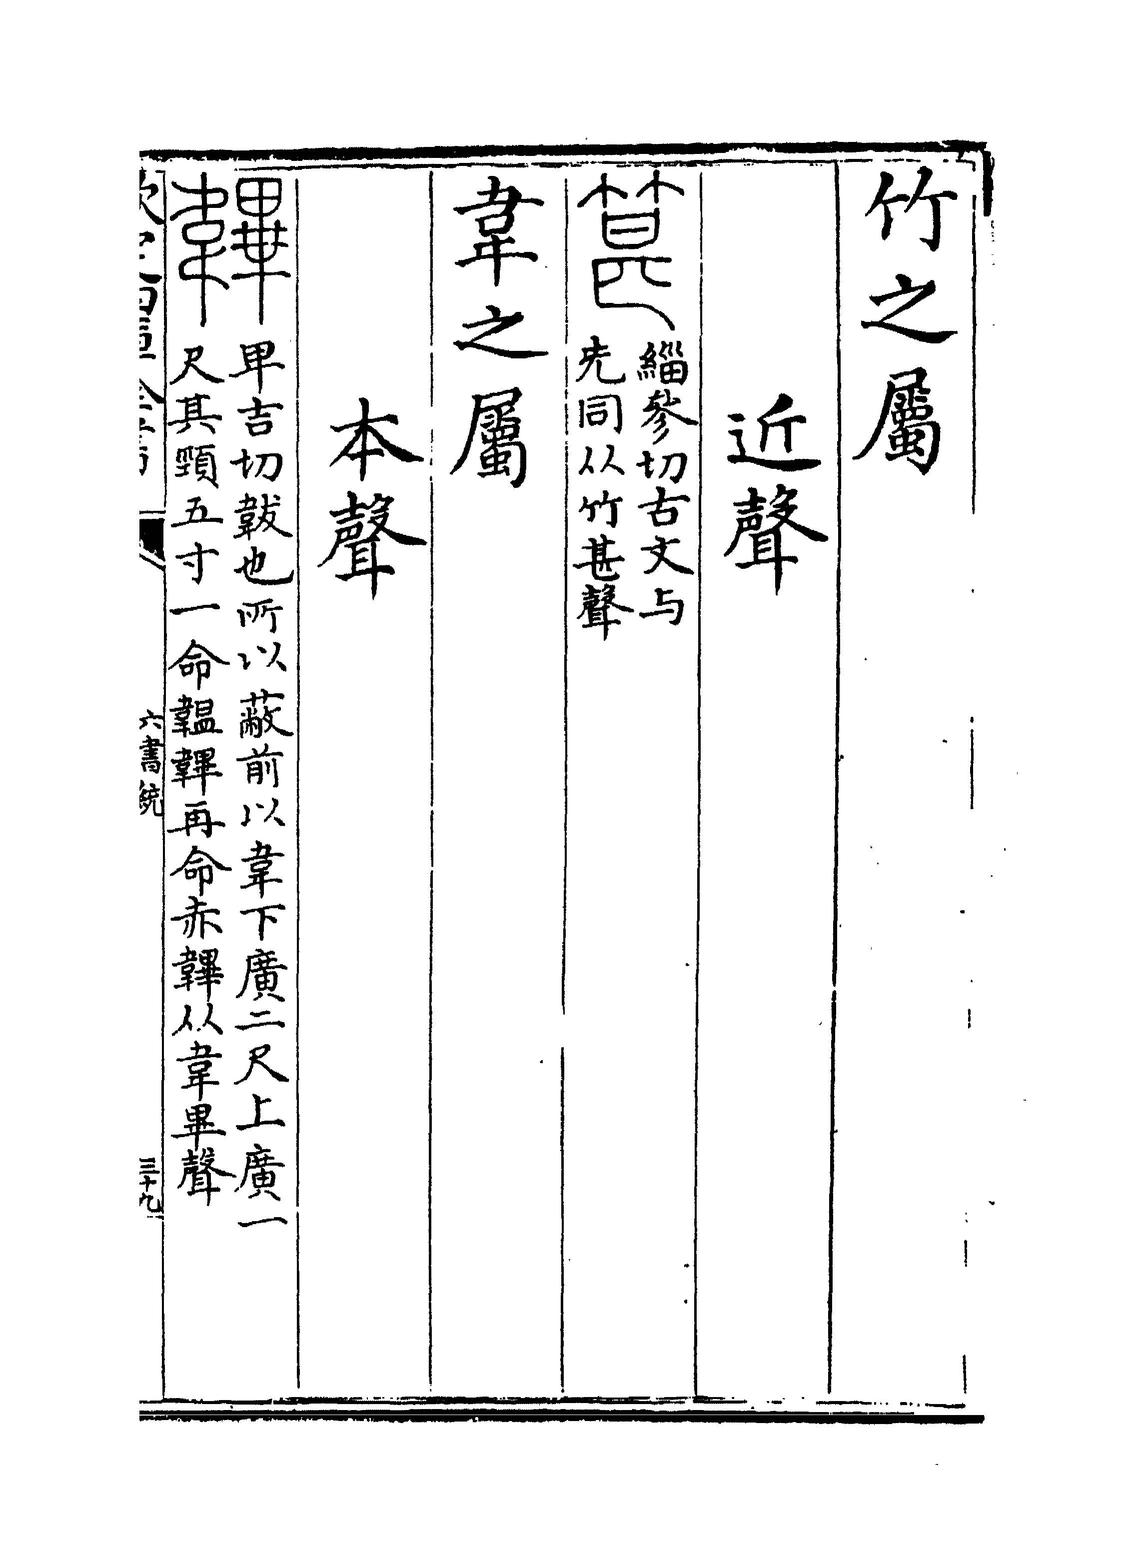 竹之屬
近聲
緇參切古文与
先同从竹甚聲
韋之屬
本聲
韠
甲吉切韍也所以蔽前以韋下廣二尺上廣一
尺其頸五寸一命韞韠再命赤韠从韋畢聲
欽定四庫全書
六書統
三十九